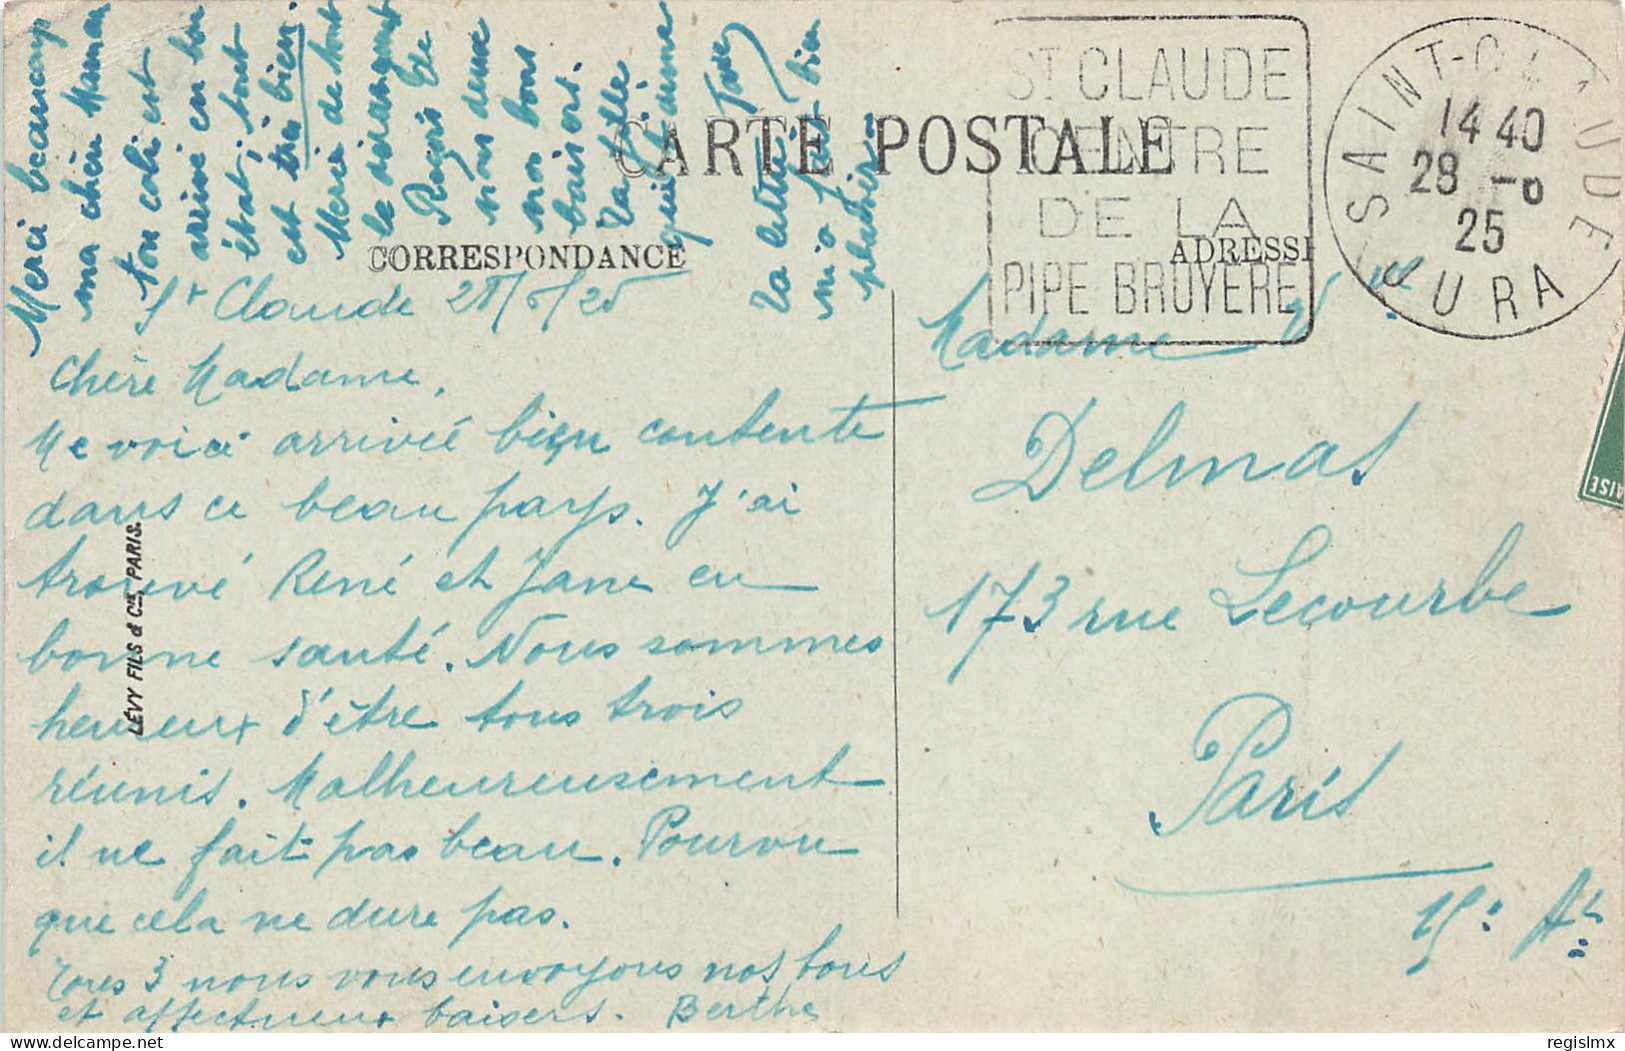 Merci beaucoup
ma chère Maman
ton coli est
arrivé en bon
état, tout
est très bien.
Merci de tout
le dérangement
Reçois de
nous deux
nos bons
baisers.
Ta fille
qui t'aime
Jane
Ta lettre
m'a fait bien
plaisir
CARTE POSTALE
CORRESPONDANCE
ADRESSE
ST CLAUDE
CENTRE
DE LA
PIPE BRUYERE
SAINT-CLAUDE
14 40
28 -6
25
JURA
St Claude 28/6/25
Chère Madame,
Me voici arrivée bien contente
dans ce beau pays. J'ai
trouvé René et Jane en
bonne santé. Nous sommes
heureux d'être tous trois
réunis. Malheureusement
il ne fait pas beau. Pourvu
que cela ne dure pas.
Tous 3 nous vous envoyons nos bons
et affectueux baisers. Berthe
LÉVY FILS & Cie, PARIS.
Madame Vve
Delmas
173 rue Lecourbe
Paris
15: At
AISE
regislmx
delcampe.net